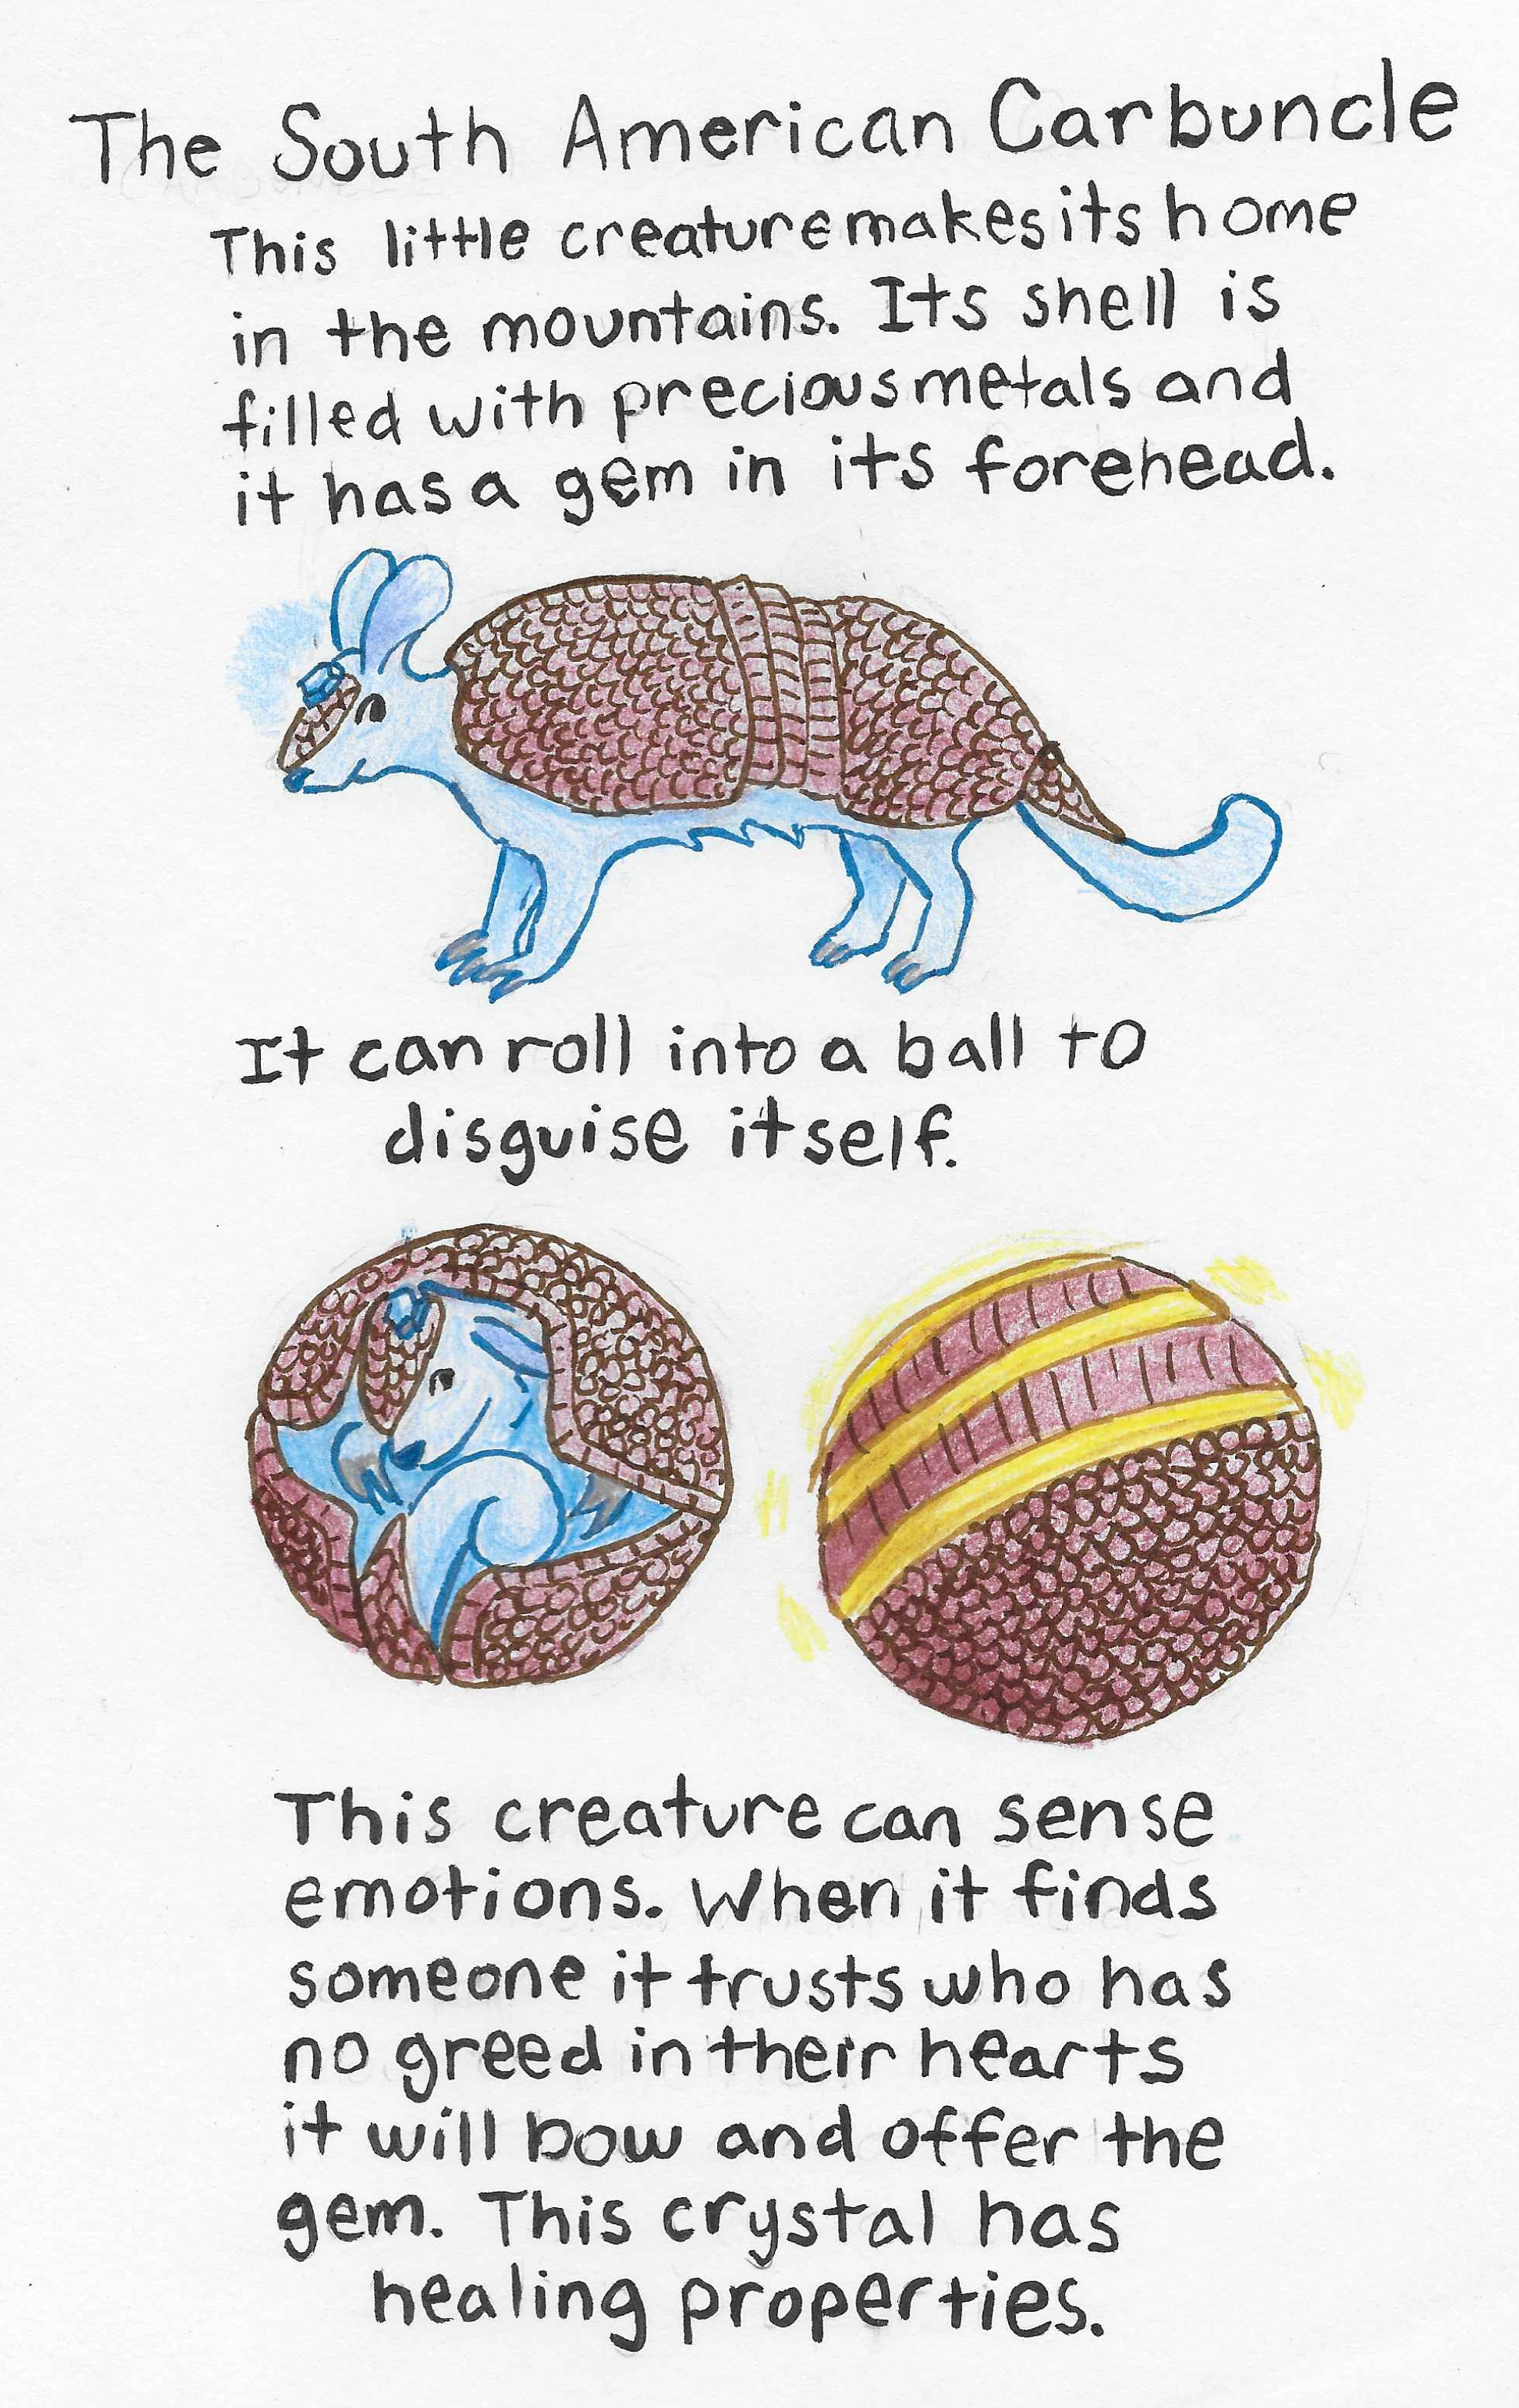 The South American Carbuncle
This little creature makes its home
in the mountains. Its shell is
filled with precious metals and
it has a gem in its forehead.
It can roll into a ball to
disguise itself.
This creature can sense
emotions. When it finds
someone it trusts who has
no greed in their hearts
it will bow and offer the
gem. This crystal has
healing properties.